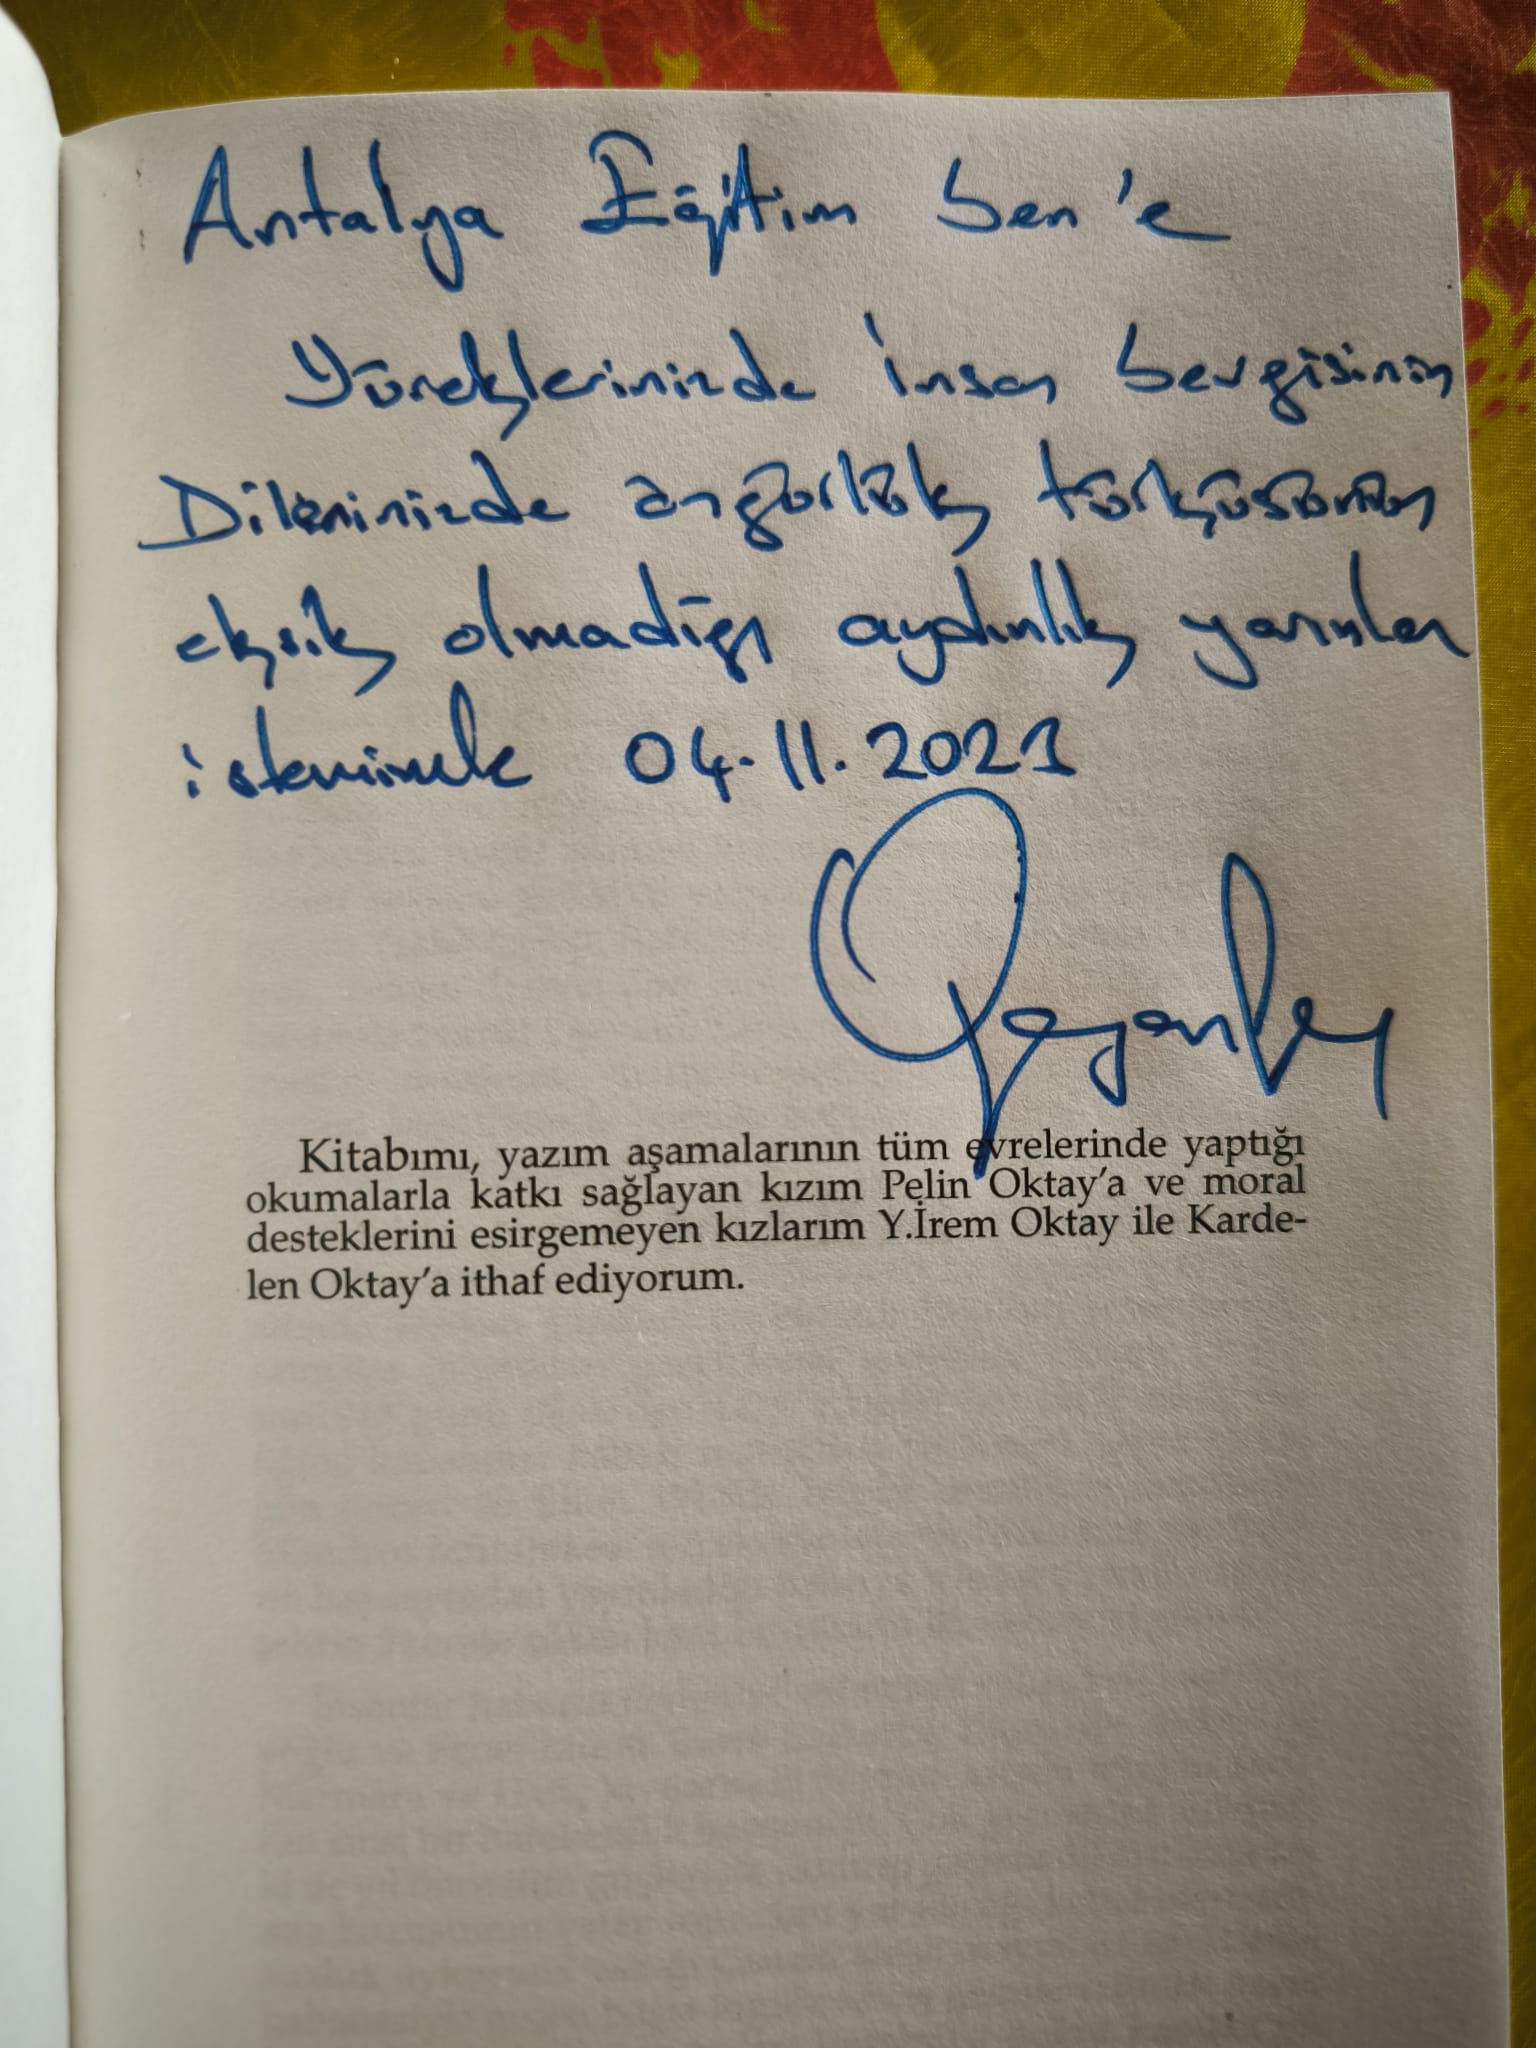 Antalya Eğitim Sen'e
Yüreklerinizde insan sevgisinin
Dillerinizde özgürlük türküsünün
eksik olmadığı aydınlık yarınlar
istemimle 04.11.2021
Kitabımı, yazım aşamalarının tüm evrelerinde yaptığı
okumalarla katkı sağlayan kızım Pelin Oktay'a ve moral
desteklerini esirgemeyen kızlarım Y.İrem Oktay ile Karde-
len Oktay'a ithaf ediyorum.